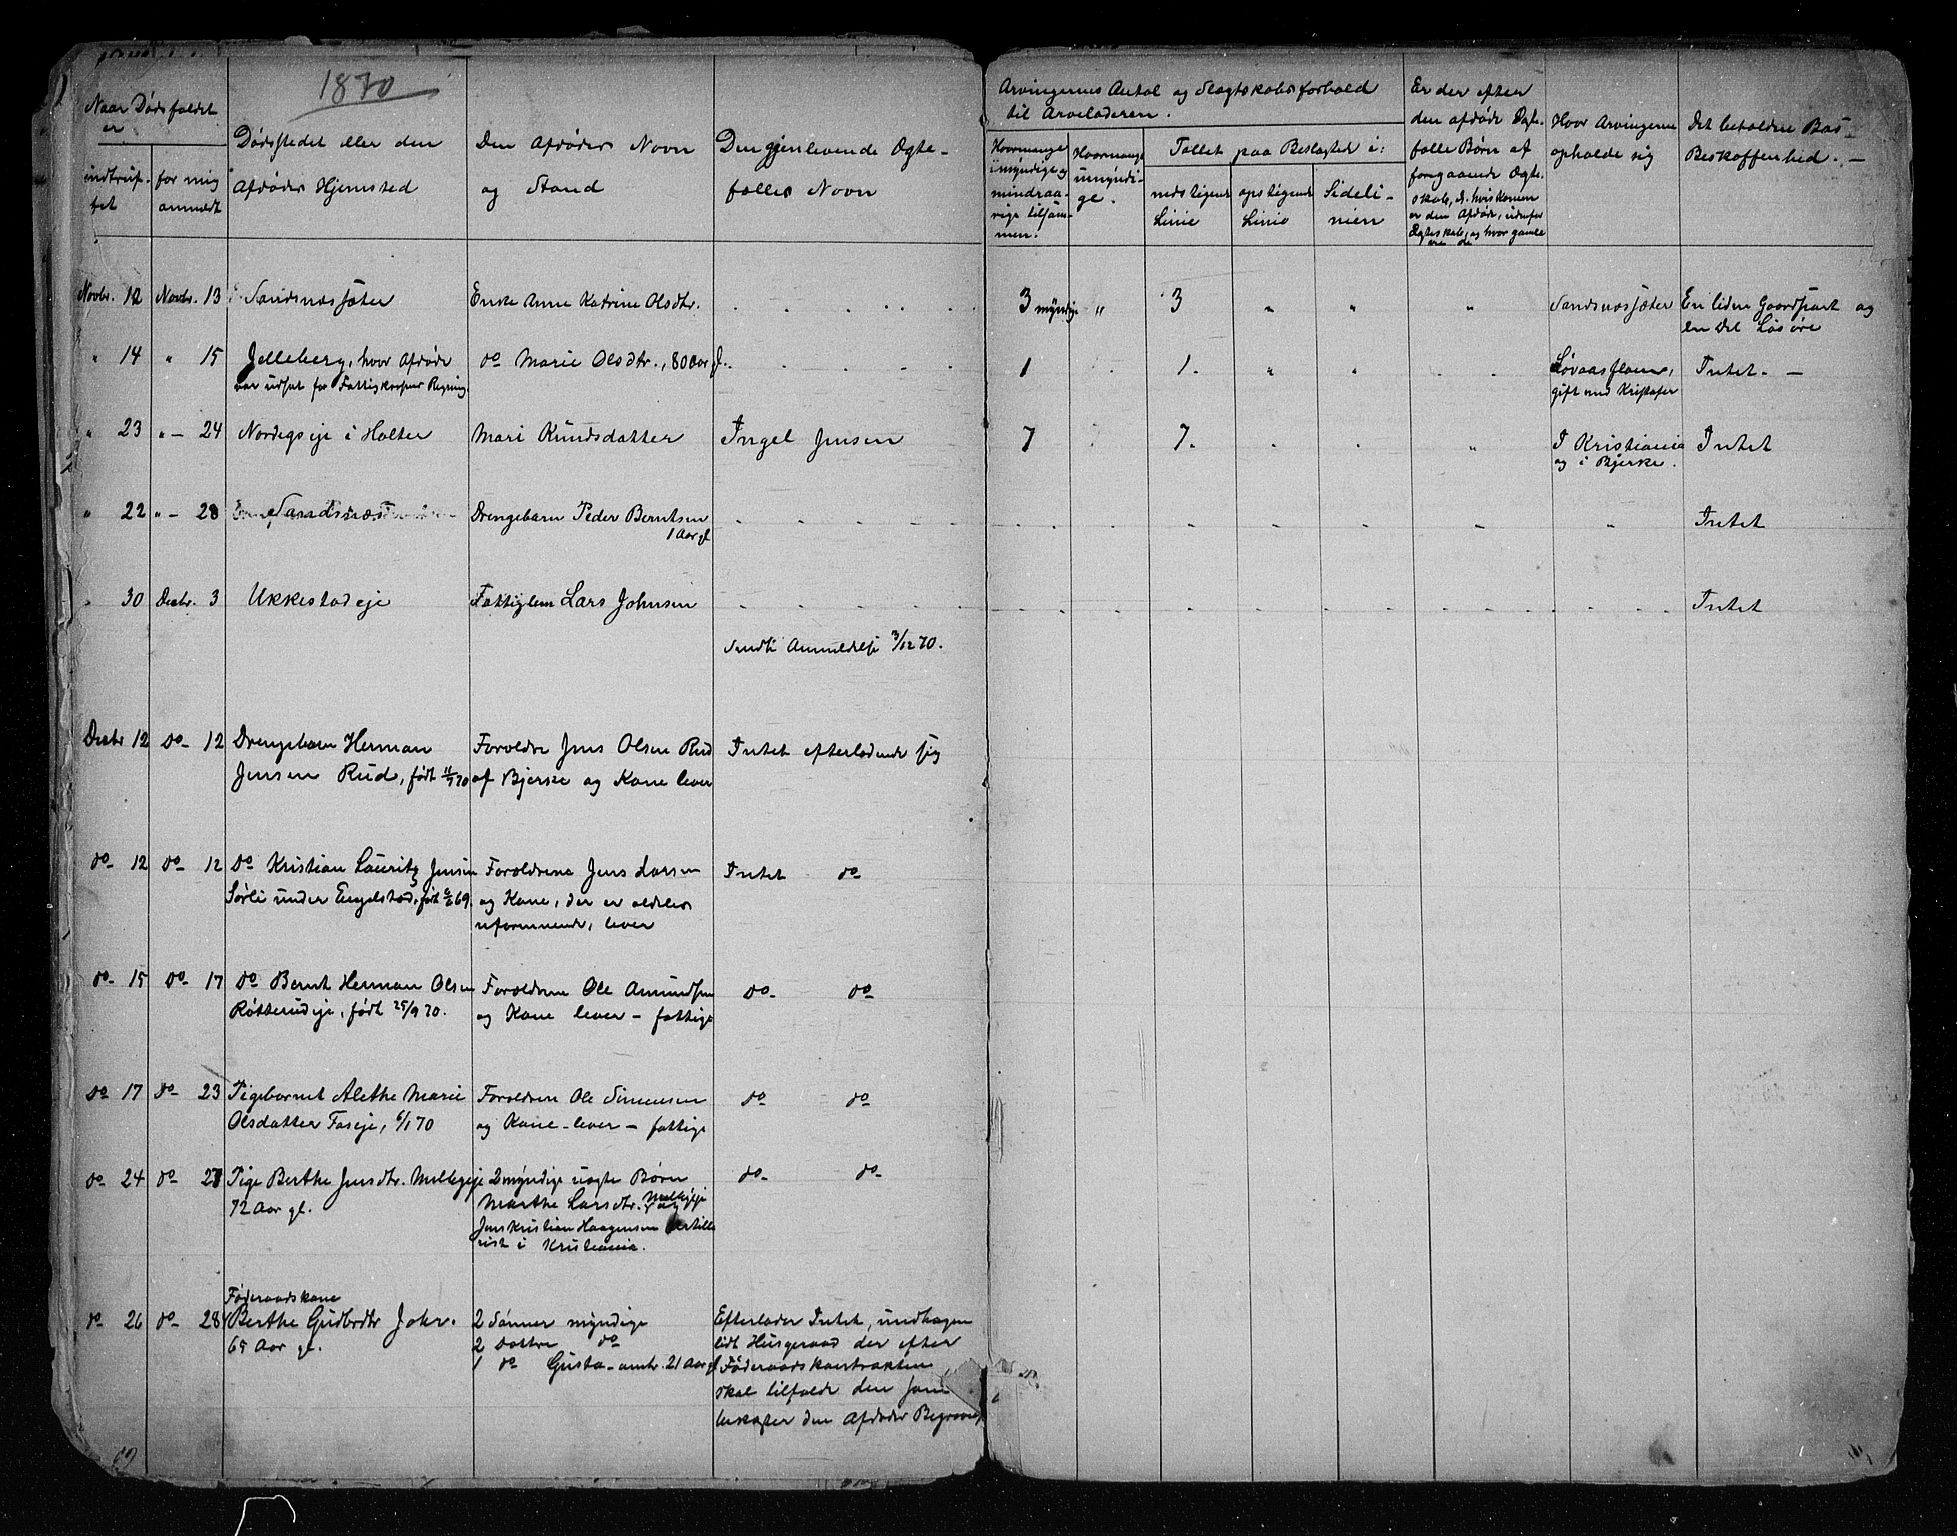 1870
Naar Dødsfaldet
er
indtruf-
fet
for mig
anmeldt
Dødsstedet eller den
Afdødes Hjemsted
Den Afdødes Navn
og Stand
Den gjenlevende Ægte-
fælles Navn
Arvingernes Antal og Slægtskabsforhold
til Arveladeren.
Hvormange
umyndige og
mindreaa-
rige tilsam-
men.
Hvormange
umyndi-
ge.
Tallet paa Beslægtede i:
nedstigende
Linie
opstigende
Linie
Sideli-
nien
Er der efter
den afdøde Ægte-
fælle Børn af
foregaaende Ægte-
skab, el. hvis Konen
er den Afdøde, udenfor
Ægteskab, og hvor gamle
ere de
Hvor Arvingerne
opholde sig
Det beholdne Boes
Beskaffenhed. —
Novbr. 12 Novbr. 13 Sandsnæssæter Enke Anne Katrine Olsdtr. 3 myndige " 3 " " " Sandsnæssæter En liden Gaardpart og
en Del Løsøre
" 14 " 15 Jelleberg, hvor Afdøde do Marie Olsdtr., 80 aar gl. 1 1. " " Løvaasflaen, Intet. —
var udsat for Fattigkassens Regning. gift med Kristofer
" 23 " — 24 Nordegseje i Holter Mari Knudsdatter Ingel Jensen 7 7. " " " I Kristiania Intet
og i Bjerke.
" 22 " — 28 Sandsnæs Drengebarn Peder Berntsen Intet
1 Aar gl.
" 30 Decbr. 3 Ukkestadeje Fattiglem Lars Johnsen Intet
Sendt Anmeldelse 3/12 70.
Decbr 12 do- 12 Drengebarn Herman Forældre Jens Olsen Rud Intet efterladende sig
Jensen Rud, født 11/7 70 af Bjerke og Kone lever
do- 12 do- 12 Do Kristian Lauritz Jensen Forældrene Jens Larsen Intet do-
Sørli under Engelstad, født 69. og Kone, der er aldeles
uformuende, lever
do- 15 do- 17 Do Bernt Herman Olsen Forældrene Ole Amundsen do- do-
Røtterudeje, født 25/9 70. og Kone lever — fattige
do- 17 do- 23 Pigebarnet Alethe Marie Forældrene Ole Simensen do- do-
Olsdatter Faseje, 6/1 70 og Kone — lever — fattige
do- 24 do- 27 Pige Berthe Jensdtr. Mellegeje 2 myndige uægte Børn do- do-
72 Aar gl. Marthe Larsdtr. Mellegeje
Jens Kristian Haagensen Artille
rist i Kristiania.
Føderaadskone
do- 26 do- 28 Berthe Gudbrdtr Johr. 2 Sønner myndige Efterlader Intet, undtagen
65 Aar gl. 2 Døttre do lidt Husgeraad der efter
1 do Gusta — omtr. 21 Aar gl. Føderaadskontrakten
skal tilfalde den som
bekoster den Afdødes Begravelse